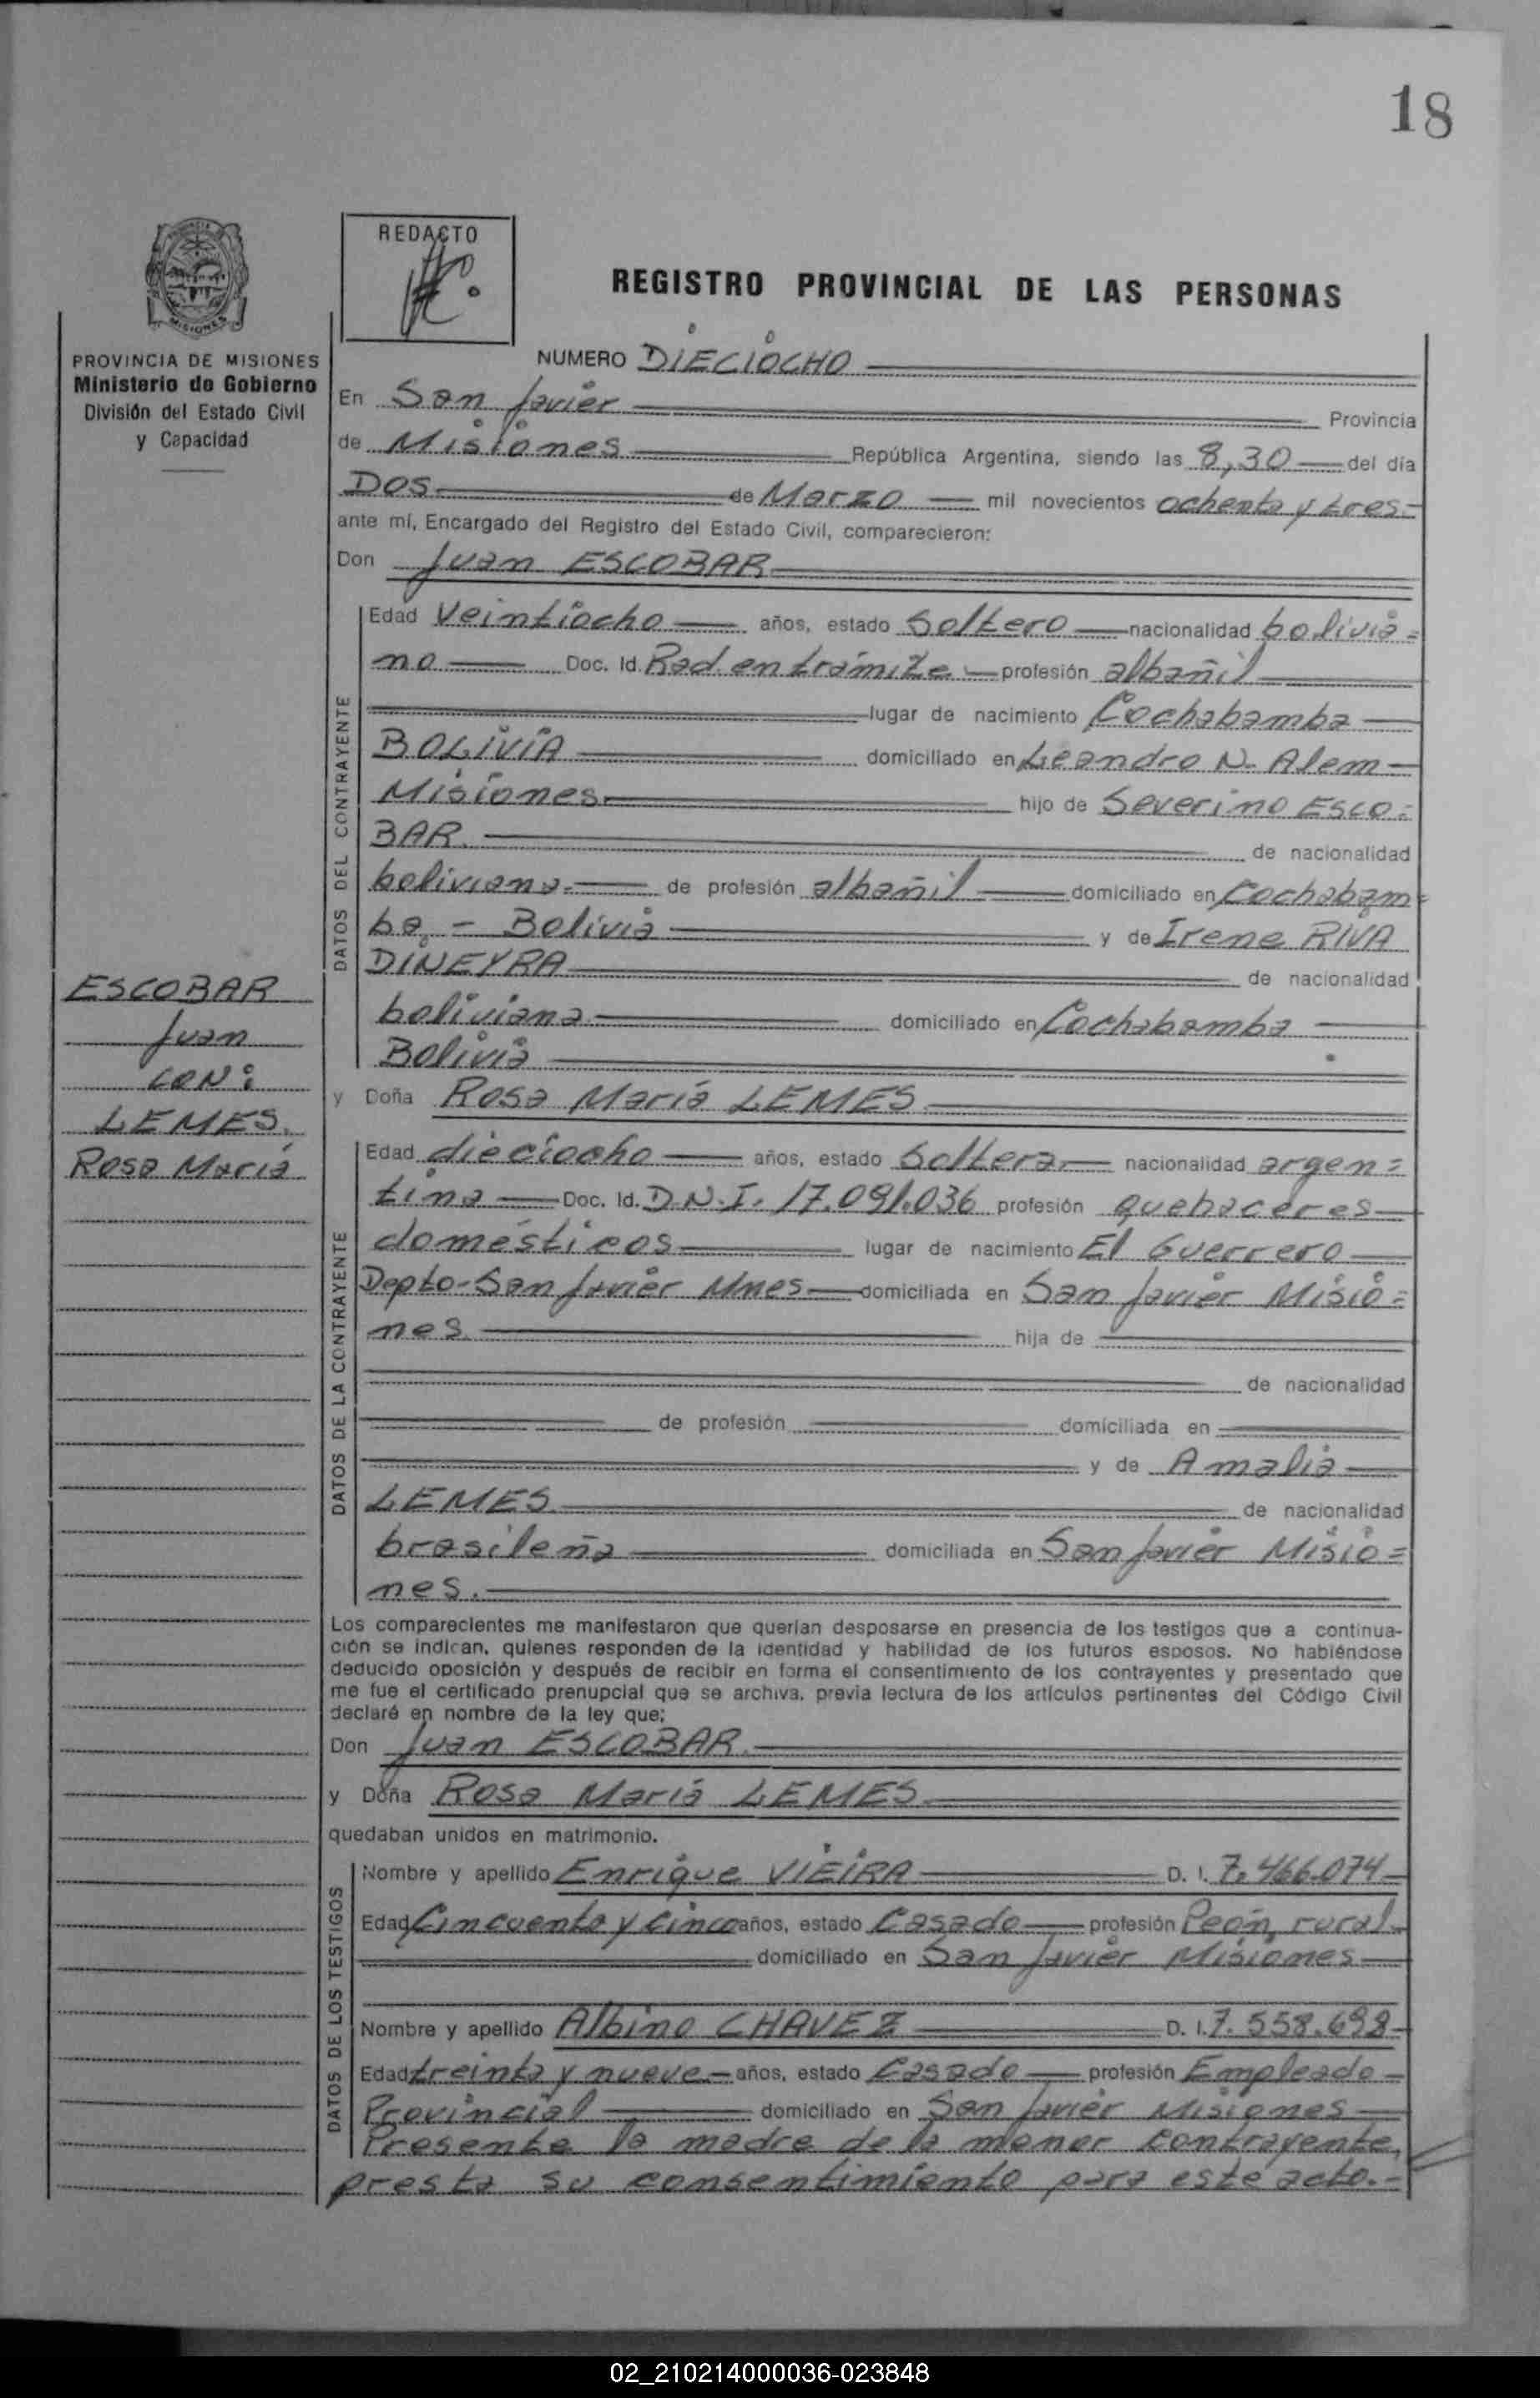 18
REDACTO
REGISTRO PROVINCIAL DE LAS PERSONAS
MISIONES
PROVINCIA DE MISIONES
Ministerio de Gobierno
División del Estado Civil
y Capacidad
NUMERO DIECIOCHO
En San Javier Provincia
de Misiones República Argentina, siendo las 8,30 del día
Dos de Marzo mil novecientos ochenta y tres.-
ante mí, Encargado del Registro del Estado Civil, comparecieron:
Don Juan ESCOBAR
DATOS DEL CONTRAYENTE
Edad Veintiocho años, estado Soltero nacionalidad bolivia=
no Doc. Id. Rad. en trámite profesión albañil
lugar de nacimiento Cochabamba
BOLIVIA domiciliado en Leandro N. Alem
Misiones hijo de Severino ESCO=
BAR. de nacionalidad
boliviana.- de profesión albañil domiciliado en Cochabam=
ba. - Bolivia y de Irene RIVA
DINEYRA de nacionalidad
boliviana domiciliado en Cochabamba
Bolivia
ESCOBAR
Juan
CON:
LEMES.
Rosa María
y Doña Rosa María LEMES
DATOS DE LA CONTRAYENTE
Edad dieciocho años, estado Soltera nacionalidad argen=
tina Doc. Id. D.N.I. 17.091.036 profesión quehaceres
domésticos lugar de nacimiento El Guerrero
Depto-San Javier Mnes domiciliada en San Javier Misio=
nes hija de
de nacionalidad
de profesión domiciliada en
y de Amalia
LEMES de nacionalidad
brasileña domiciliada en San Javier Misio=
nes.
Los comparecientes me manifestaron que querían desposarse en presencia de los testigos que a continua-
ción se indican, quienes responden de la identidad y habilidad de los futuros esposos. No habiéndose
deducido oposición y después de recibir en forma el consentimiento de los contrayentes y presentado que
me fue el certificado prenupcial que se archiva, previa lectura de los artículos pertinentes del Código Civil
declaré en nombre de la ley que;
Don Juan ESCOBAR.
y Doña Rosa María LEMES
quedaban unidos en matrimonio.
DATOS DE LOS TESTIGOS
Nombre y apellido Enrique VIEIRA D. I. 7.466.074
Edad Cincuenta y cinco años, estado Casado profesión Peón rural
domiciliado en San Javier Misiones
Nombre y apellido Albino CHAVEZ D. I. 7.558.698
Edad treinta y nueve años, estado Casado profesión Empleado
Provincial domiciliado en San Javier Misiones
Presente la madre de la menor contrayente,
presta su consentimiento para este acto.-
02_210214000036-023848